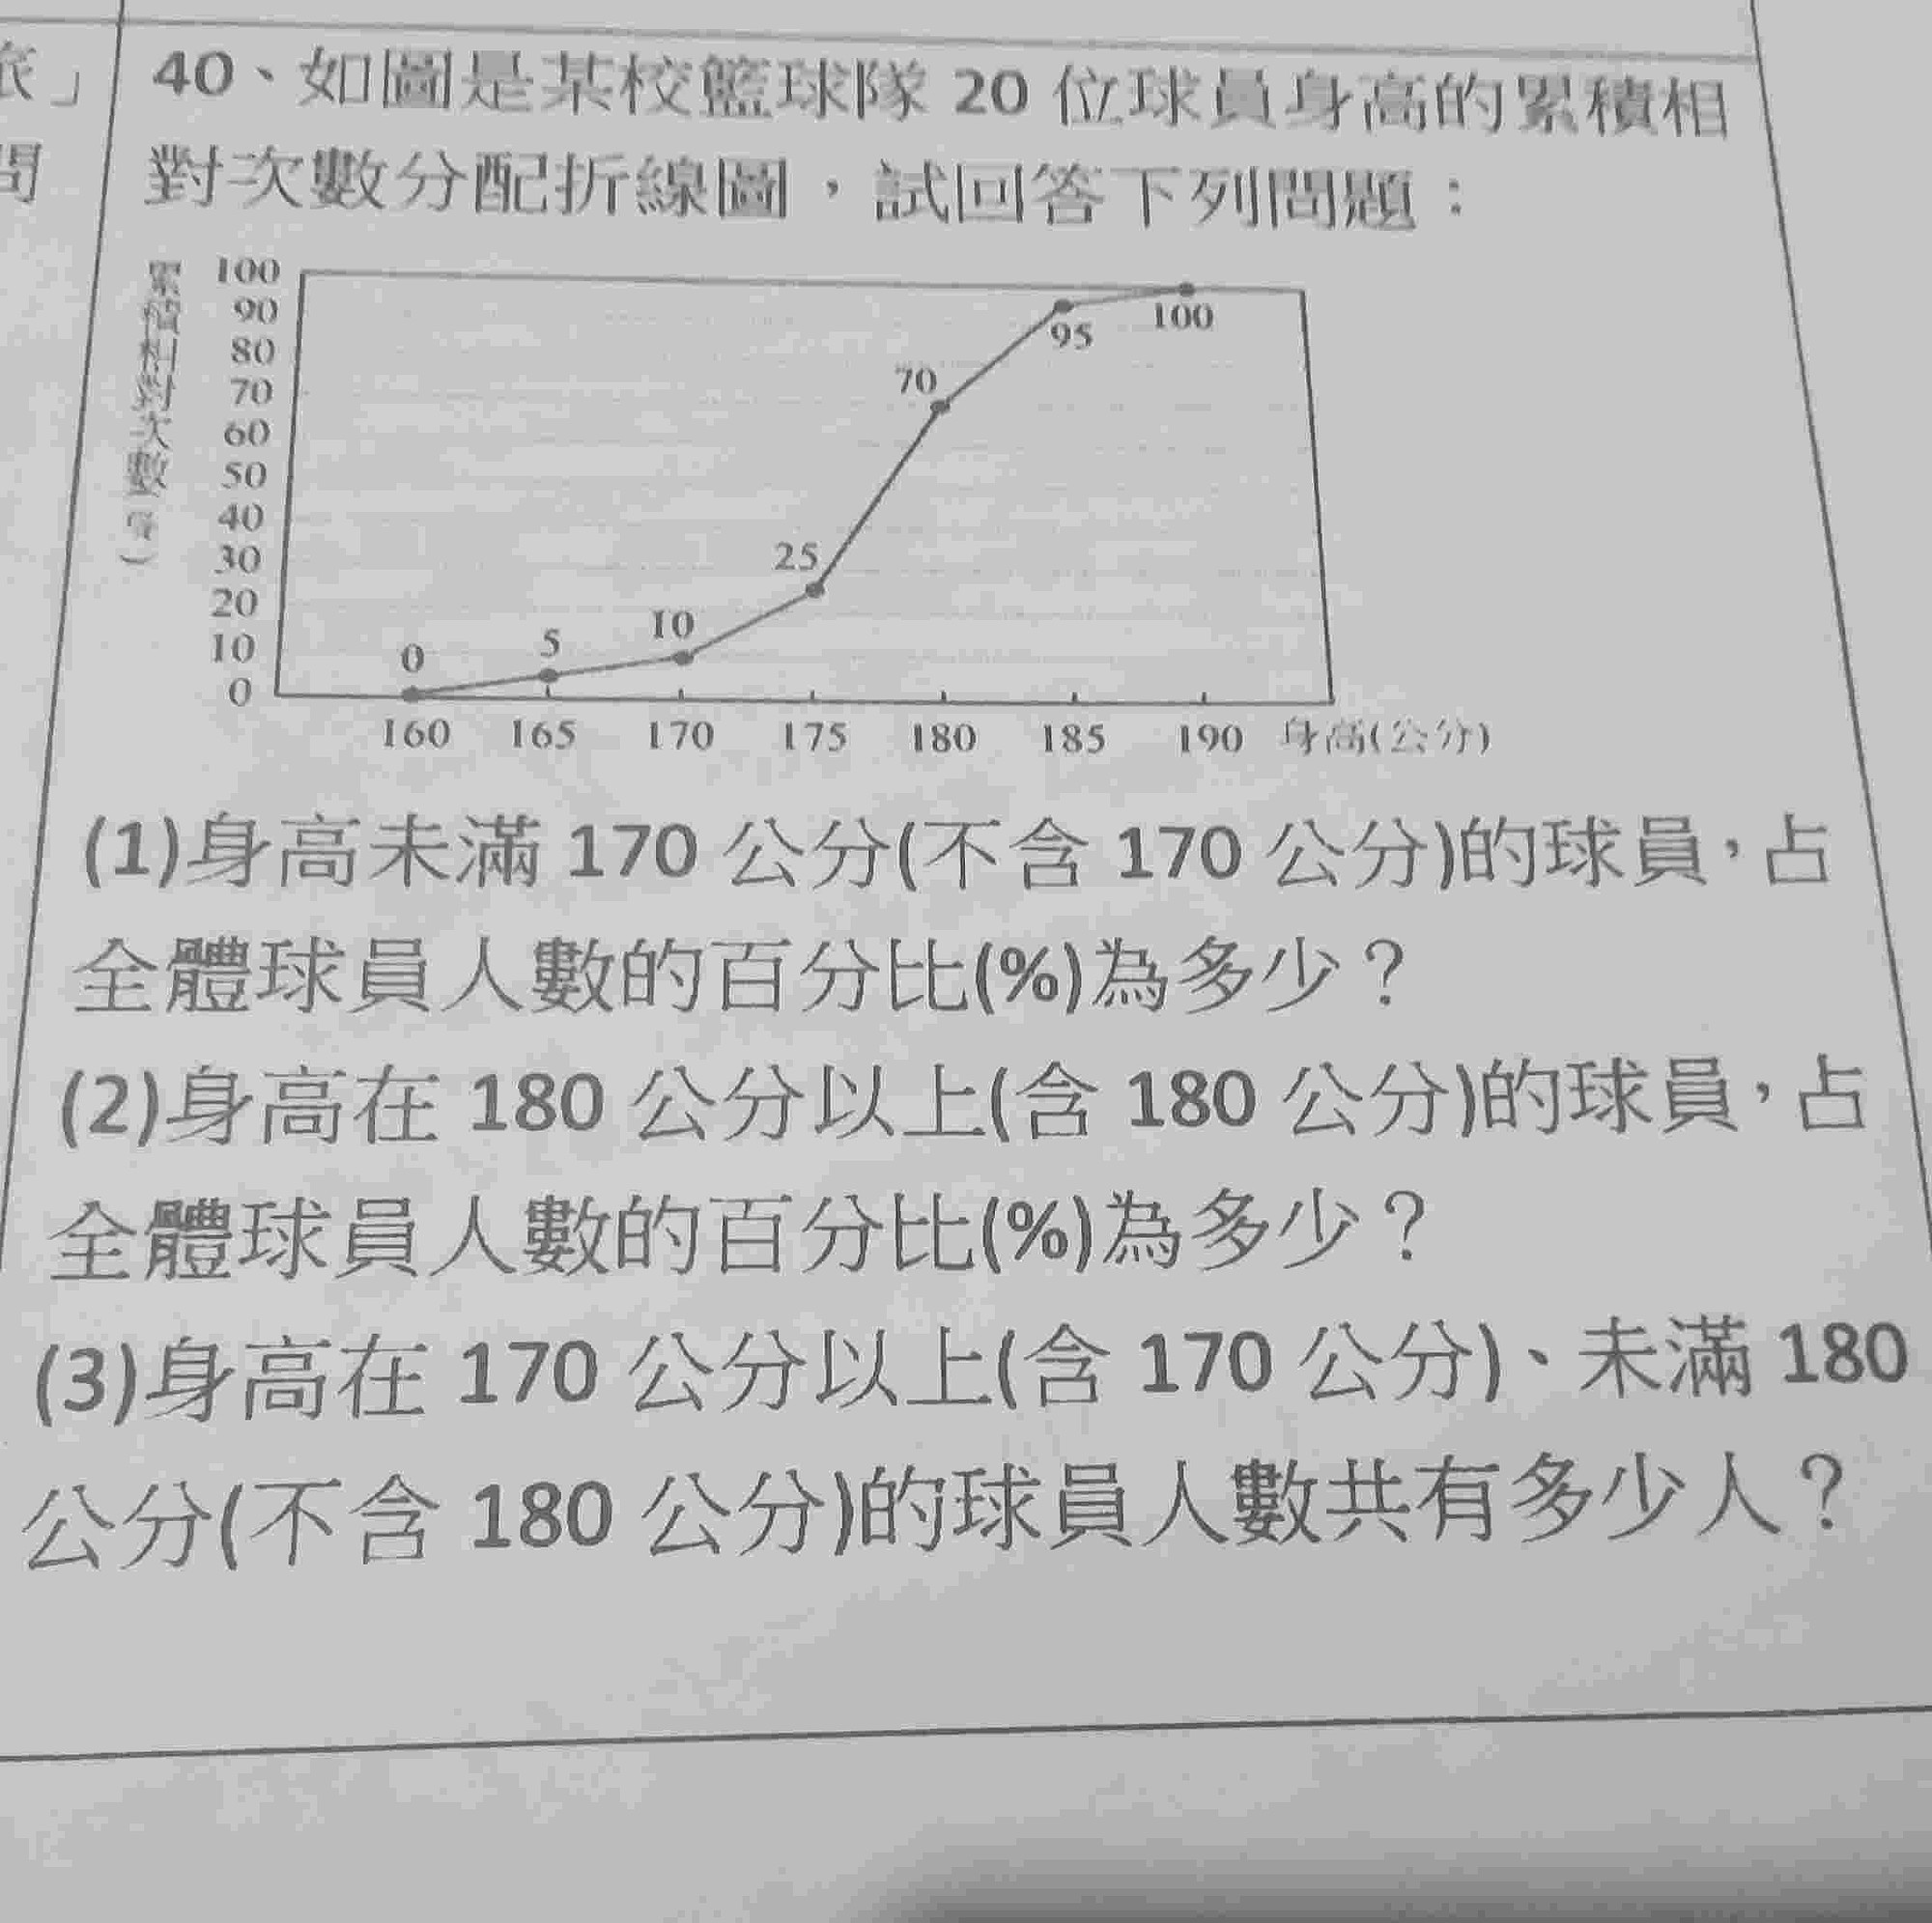 旅」
問
40、如圖是某校籃球隊 20 位球員身高的累積相
對次數分配折線圖，試回答下列問題：
累積相對次數(%)
100
90
80
70
60
50
40
30
20
10
0
0
5
10
25
70
95
100
160 165 170 175 180 185 190 身高(公分)
(1)身高未滿 170 公分(不含 170 公分)的球員，占
全體球員人數的百分比(%)為多少？
(2)身高在 180 公分以上(含 180 公分)的球員，占
全體球員人數的百分比(%)為多少？
(3)身高在 170 公分以上(含 170 公分)、未滿 180
公分(不含 180 公分)的球員人數共有多少人？